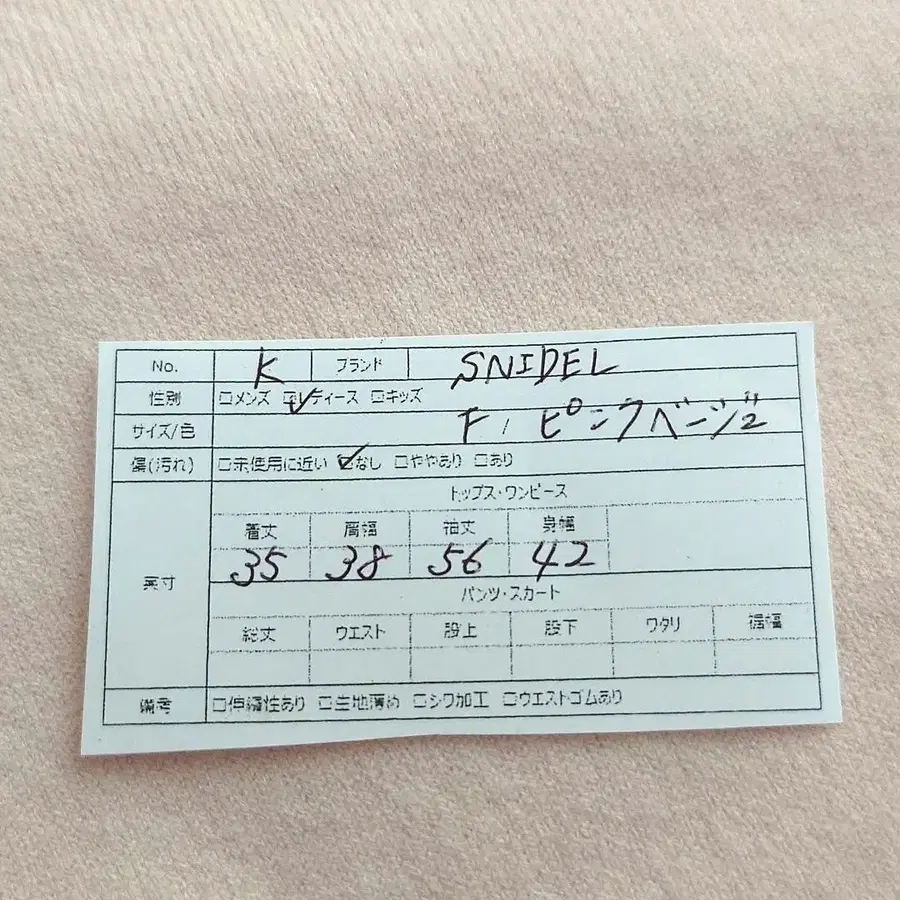 No. K ブランド SNIDEL
性別 □メンズ ☑レディース □キッズ
サイズ/色 F / ピンクベージュ
傷(汚れ) □未使用に近い ☑なし □ややあり □あり
トップス・ワンピース
着丈 肩幅 袖丈 身幅
35 38 56 42
実寸
パンツ・スカート
総丈 ウエスト 股上 股下 ワタリ 裾幅
備考 □伸縮性あり □生地薄め □シワ加工 □ウエストゴムあり